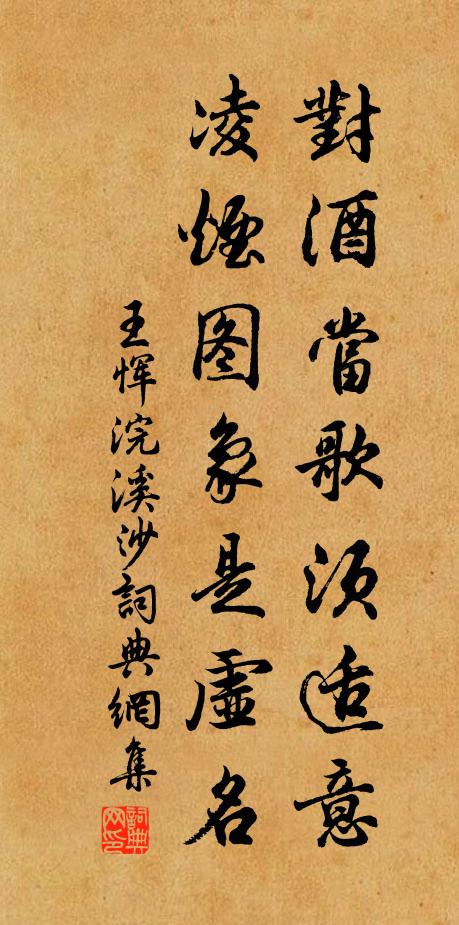 對酒當歌須适意
凌煙图象是虛名
王恽浣溪沙詞典網集
詞典网印